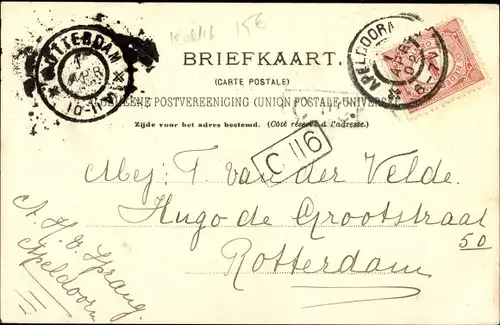 15€
ROTTERDAM
1
APR
10-11
APELDOORN
1
APR
02
BRIEFKAART.
(CARTE POSTALE)
POSTVEREENIGING (UNION POSTALE UNIVERS
Zijde voor het adres bestemd. (Côté réservé à l'adresse.)
C 116
Mej: T. van der Velde.
Hugo de Grootstraat
50
Rotterdam
A. H. v. Sprang.
Apeldoorn